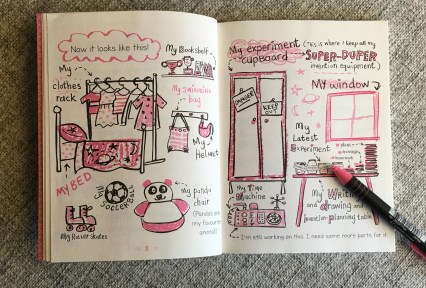 Now it looks like this!
My Bookshelf
My
clothes
rack
My swimming
bag
My
Helmet
MY BED
My SOCCERBALL
My panda
chair
(Pandas are
my favourite
animal)
My Roller skates
8
My experiment
cupboard
(This is where I keep all my
SUPER-DUPER
invention equipment)
DANGER
KEEP
OUT
My window
My
Latest
Experiment
My Time
Machine
My Writing
and drawing and
invention-planning table
I'm still working on this. I need some more parts for it.